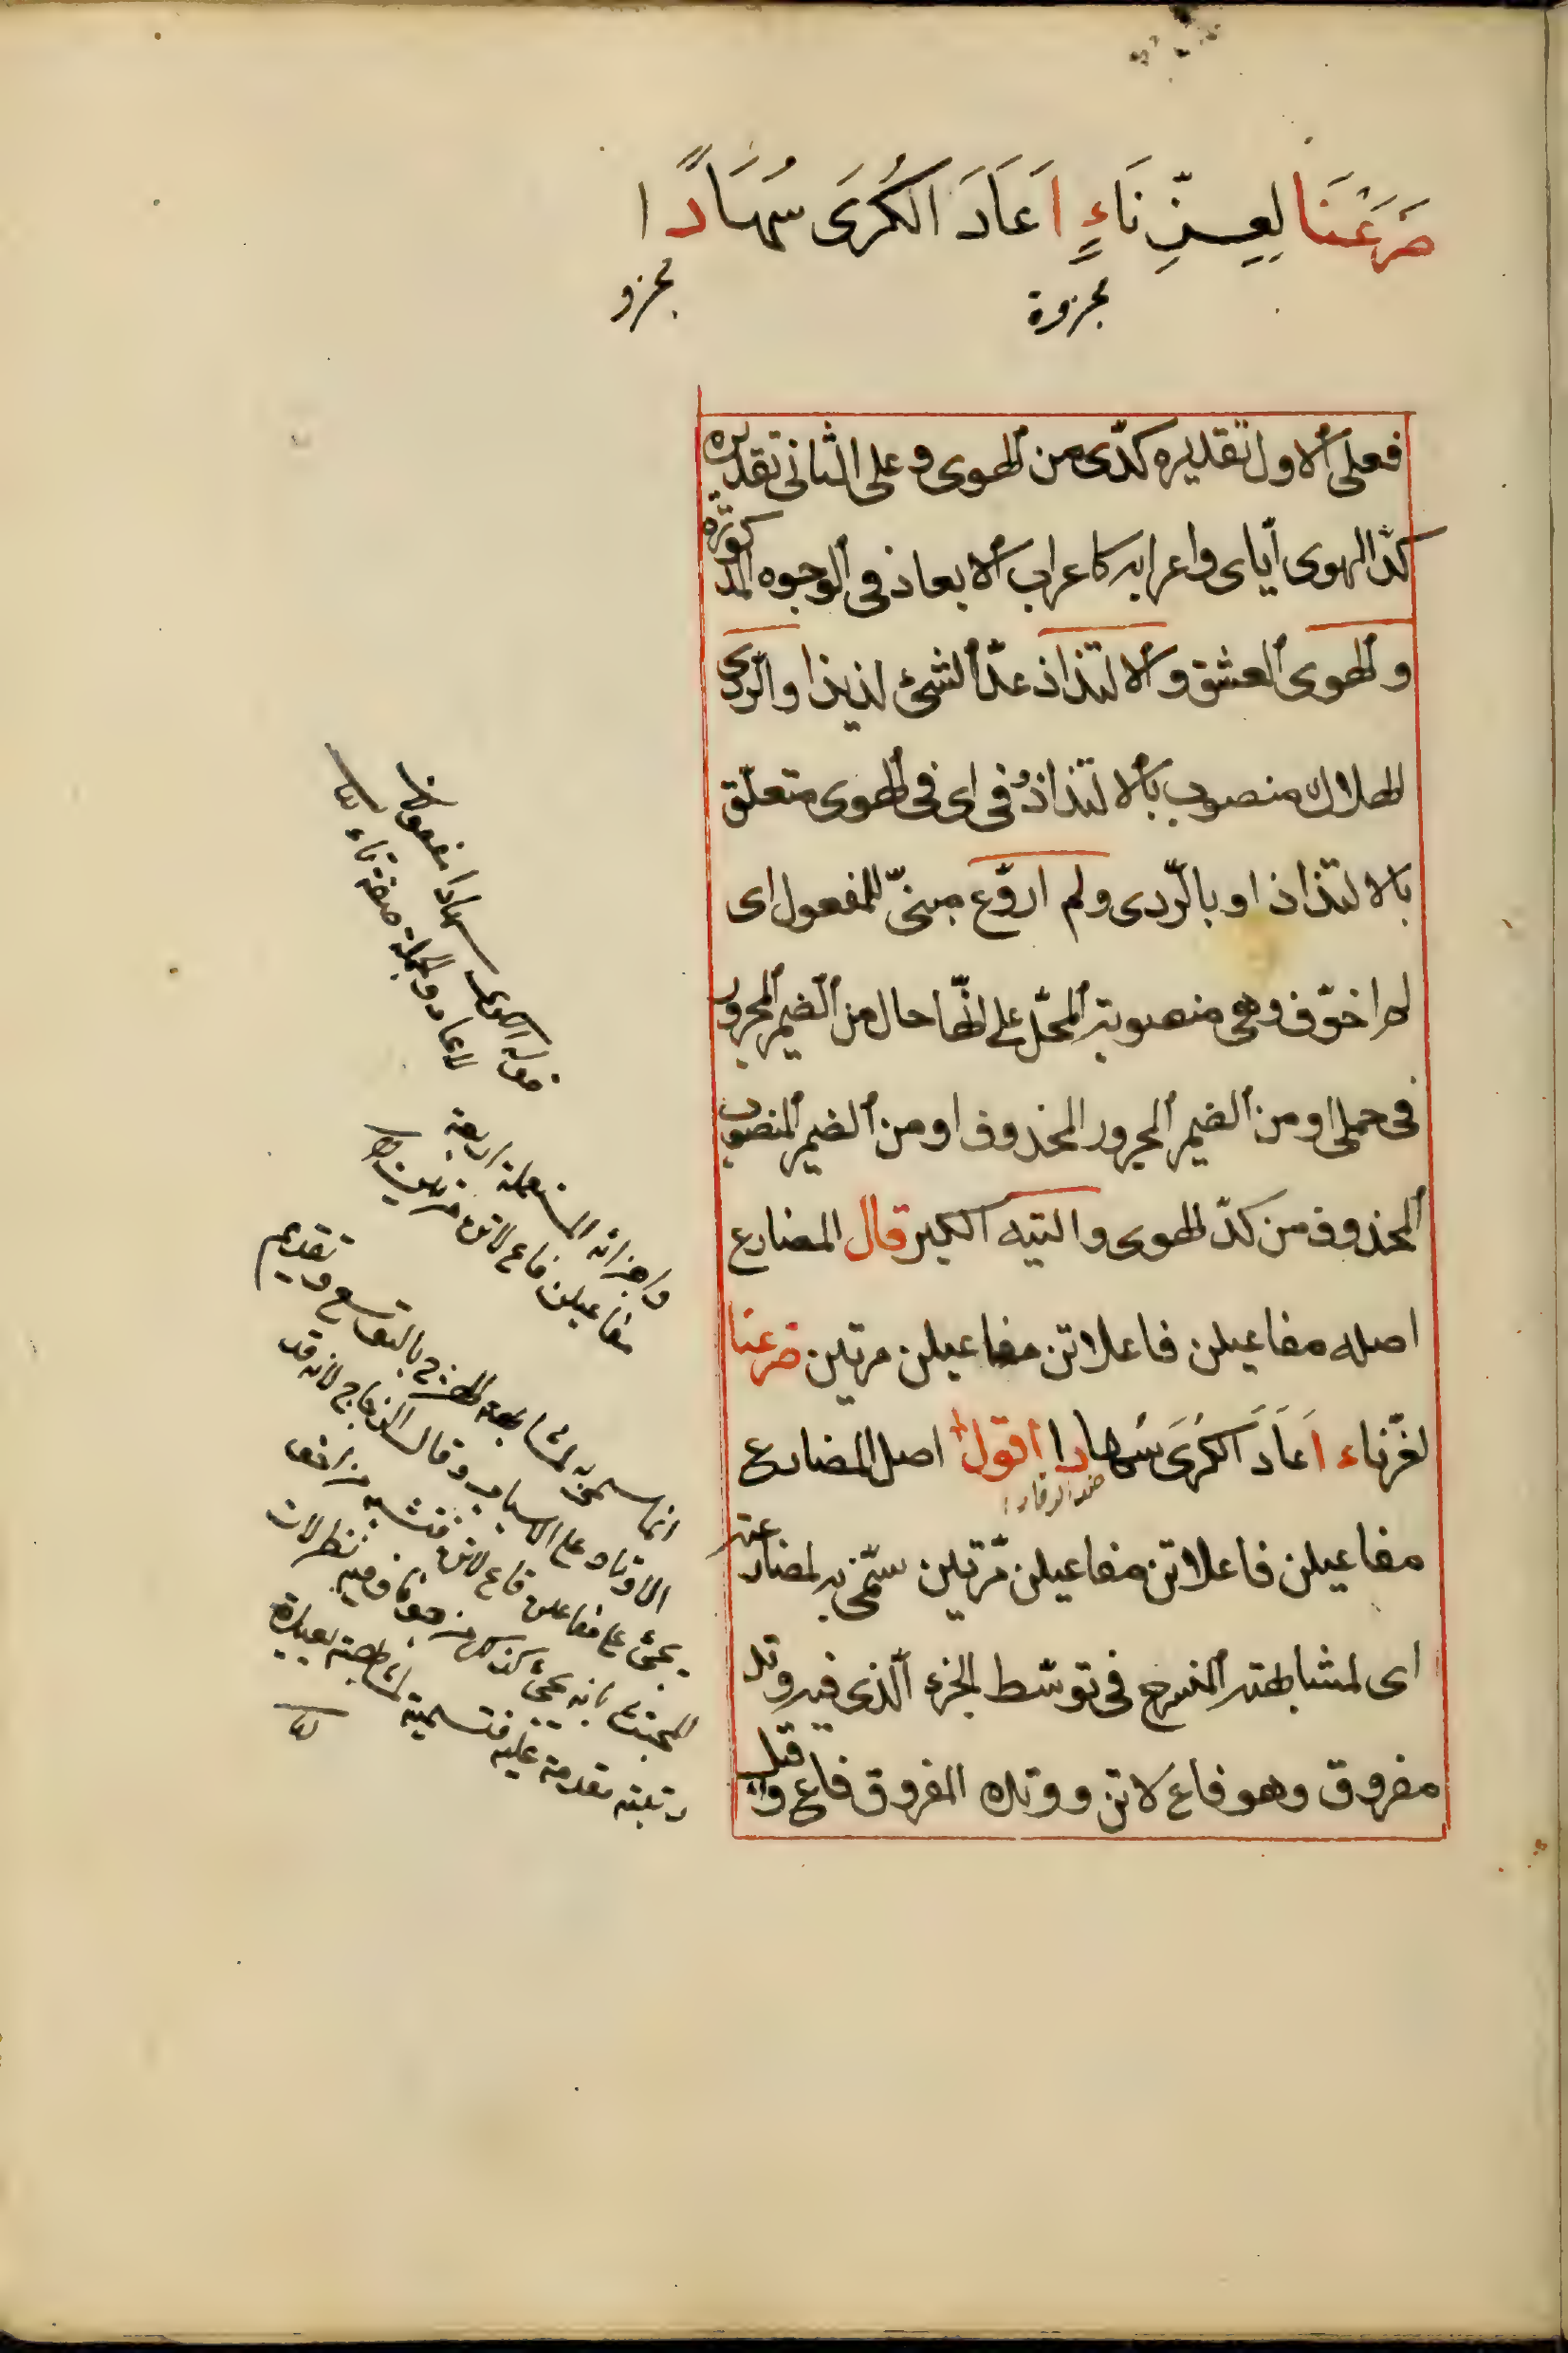 ضَرَعْنَا لِعِزِّ نَاءٍ اَعَادَ الكَرَى سُهَادًا
مجزوة
مجزو
فعلى الاول تقديره كدّى من الهوى وعلى الثانى تقديره
كدّ الهوى ايّاى واعرابه كاعراب الابعاد فى الوجوه المذكورة
والهوى العشق والالتذاذ عدّ الشئ لذيذا والردى
الهلاك منصوب بالالتذاذ وفى اى فى الهوى متعلّق
بالالتذاذ او بالرّدى ولم اروّع مبنىّ للمفعول اى
لم اخوّف وهى منصوبة المحلّ على انّها حال من الضمير المجرور
فى حملى او من الضمير المجرور المحذوف او من الضمير المنصوب
المحذوف من كدّ الهوى والتيه الكبر قال المضارع
اصله مفاعيلن فاعلاتن مفاعيلن مرتين ضرعنا
لعزّ ناء اَعَادَ الكَرَى سُهادا اقول اصل المضارع
ضد الرقاد
مفاعيلن فاعلاتن مفاعيلن مرّتين سمّى به لمضارعته
اى لمشابهته المنسرح فى توسّط الجزء الّذى فيه وتد
مفروق وهو فاع لاتن ووتده المفروق فاع وقيل
قوله الكرى سهادا مفعولا
لاعاد والجملة صفة ناء
واجزائه المستعملة اربعة
مفاعيلن فاع لاتن مرتين
انما سمى به لمشابهته الهزج بالتوسع وتقديم
الاوتاد على الاسباب وقال الزجاج لانه قد
يجئ على مفاعلن فاع لاتن